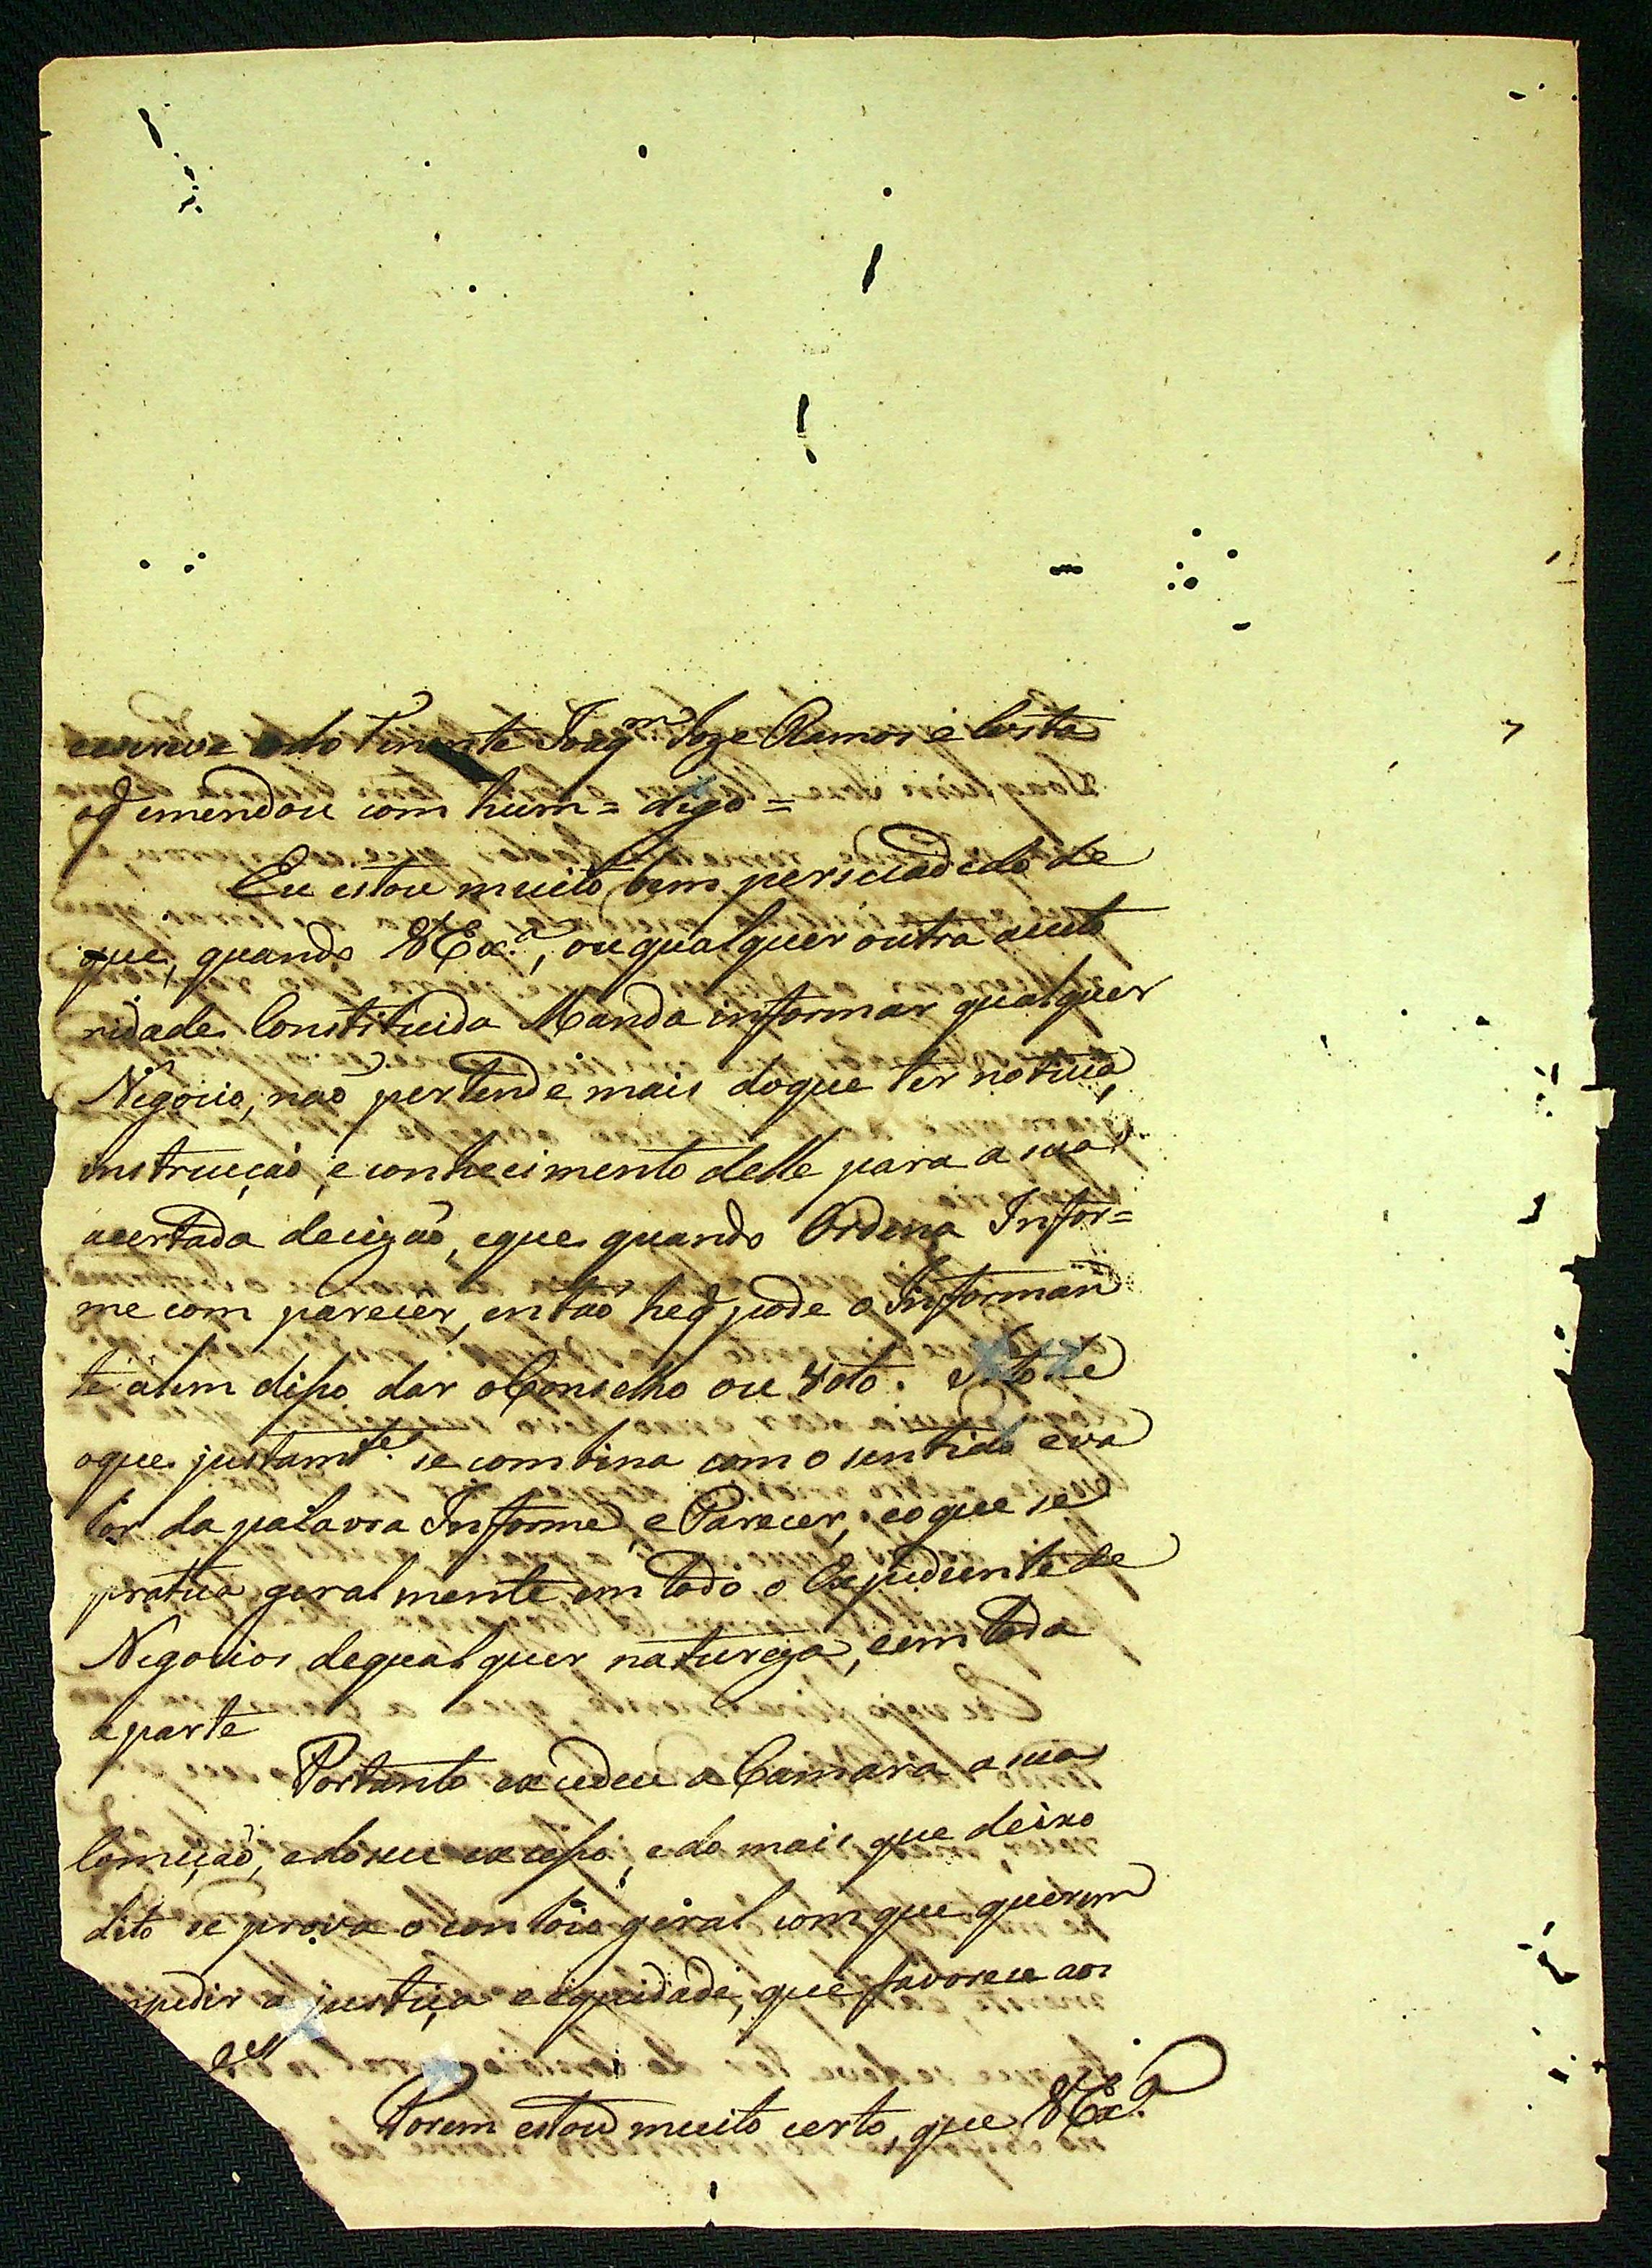 escreve o do Tenente Joaqm. Joze Ramos e Costa
oq emendou com hum = digo =
Eu estou muito bem persuadido de
que, quando VExa., ou qualquer outra auto
ridade Constituida Manda informar qualquer
Negocio, não pertende mais doque ter noticia,
instrucção, e conhecimento delle para a sua
acertada decizão, eque quando Ordena Infor=
me com parecer, então heq pode o Informan
te alem disso dar o Conselho ou Voto. Isto he
oque justamte. se combina com o sentido eva
lor da palavra Informe, e Parecer, eoque se
pratica geralmente em todo o Expediente de
Negocios dequalquer natureza, eem toda
aparte
Portanto excedeu a Camara a sua
Comição, edoseu excesso, edo mais que deixo
dito se prova o conloio geral comque querem
mpedir a justiça e equidade, que favorece aos
Porem estou muito certo, que VExa.